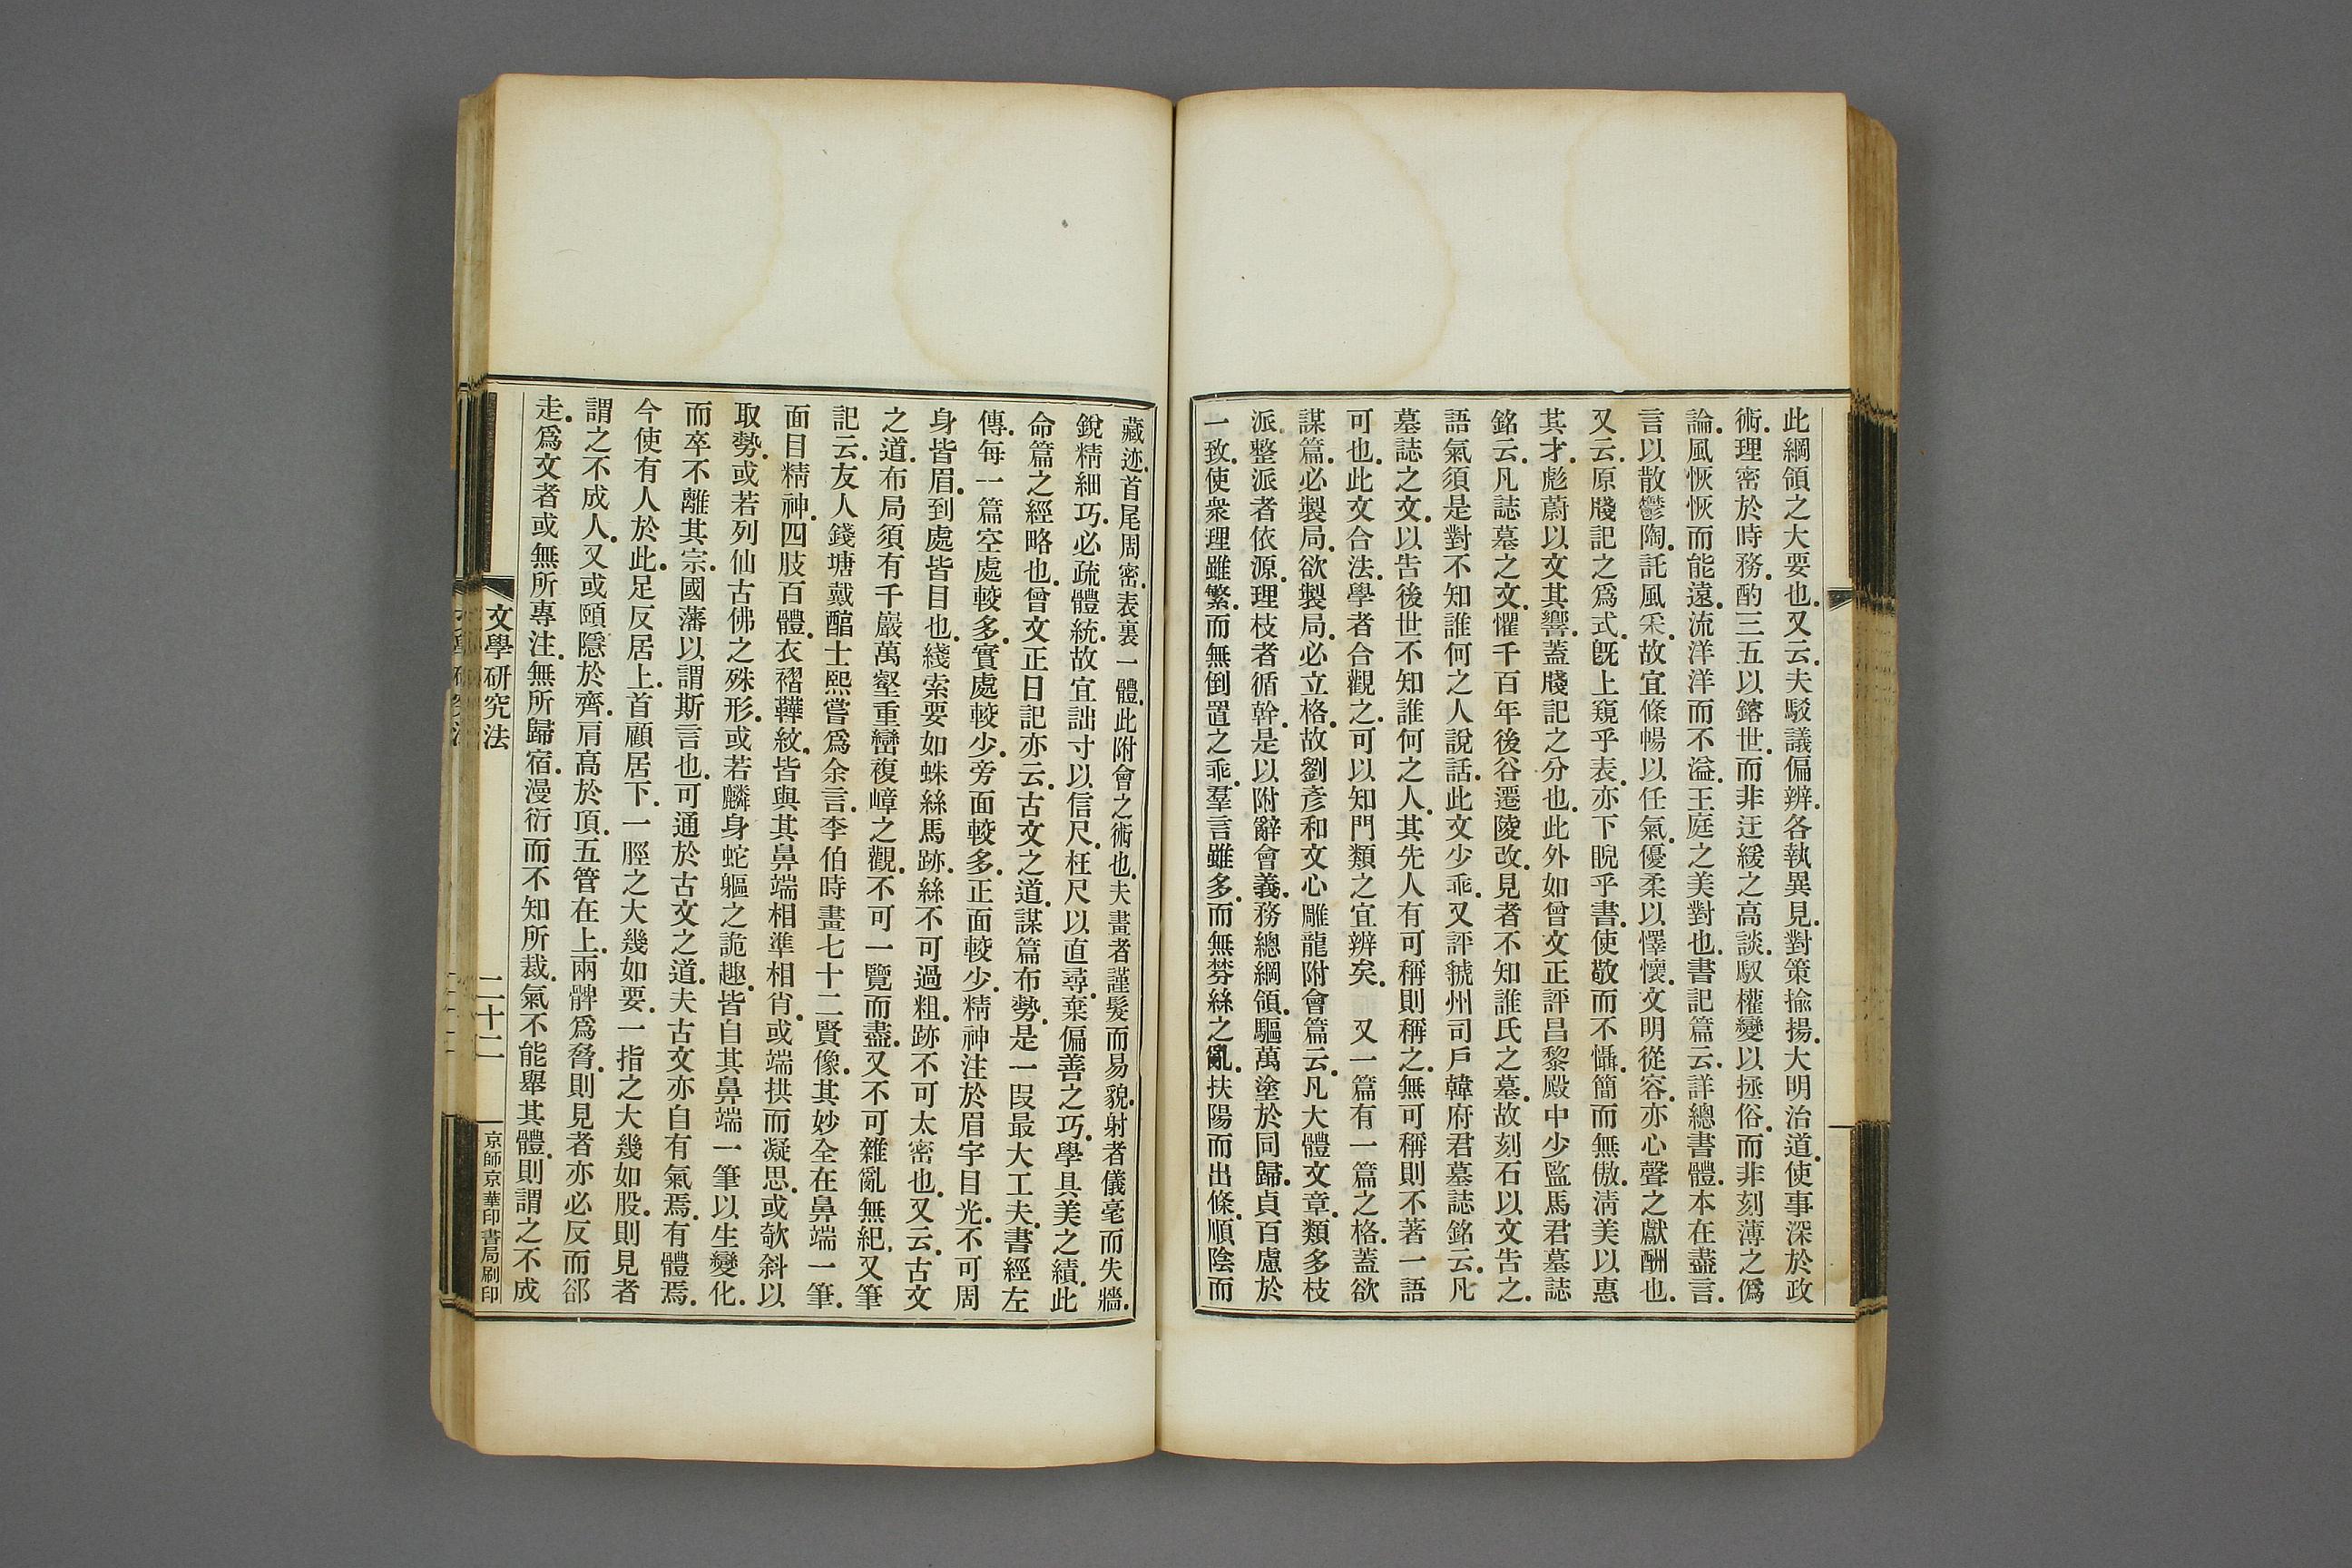 此綱領之大要也又云夫駁議偏辨各執異見對策揄揚大明治道使事深於政
術理密於時務酌三五以鎔世而非迂緩之高談馭權變以拯俗而非刻薄之僞
論風恢恢而能遠流洋洋而不溢王庭之美對也書記篇云詳總書體本在盡言
言以散鬱陶託風采故宜條暢以任氣優柔以懌懷文明從容亦心聲之獻酬也
又云原牋記之爲式旣上窺乎表亦下睨乎書使敬而不懾簡而無傲淸美以惠
其才彪蔚以文其響蓋牋記之分也此外如曾文正評昌黎殿中少監馬君墓誌
銘云凡誌墓之文懼千百年後谷遷陵改見者不知誰氏之墓故刻石以文告之
語氣須是對不知誰何之人說話此文少乖又評虢州司戶韓府君墓誌銘云凡
墓誌之文以告後世不知誰何之人其先人有可稱則稱之無可稱則不著一語
可也此文合法學者合觀之可以知門類之宜辨矣　又一篇有一篇之格蓋欲
謀篇必製局欲製局必立格故劉彥和文心雕龍附會篇云凡大體文章類多枝
派整派者依源理枝者循幹是以附辭會義務總綱領驅萬塗於同歸貞百慮於
一致使衆理雖繁而無倒置之乖羣言雖多而無棼絲之亂扶陽而出條順陰而
藏迹首尾周密表裏一體此附會之術也夫畫者謹髮而易貌射者儀毫而失牆
銳精細巧必疏體統故宜詘寸以信尺枉尺以直尋棄偏善之巧學具美之績此
命篇之經略也曾文正日記亦云古文之道謀篇布勢是一段最大工夫書經左
傳每一篇空處較多實處較少旁面較多正面較少精神注於眉宇目光不可周
身皆眉到處皆目也綫索要如蛛絲馬跡絲不可過粗跡不可太密也又云古文
之道布局須有千巖萬壑重巒複嶂之觀不可一覽而盡又不可雜亂無紀又筆
記云友人錢塘戴醕士熙嘗爲余言李伯時畫七十二賢像其妙全在鼻端一筆
面目精神四肢百體衣褶鞾紋皆與其鼻端相準相肖或端拱而凝思或欹斜以
取勢或若列仙古佛之殊形或若麟身蛇軀之詭趣皆自其鼻端一筆以生變化
而卒不離其宗國藩以謂斯言也可通於古文之道夫古文亦自有氣焉有體焉
今使有人於此足反居上首顧居下一脛之大幾如要一指之大幾如股則見者
謂之不成人又或頤隱於齊肩高於頂五管在上兩髀爲脅則見者亦必反而卻
走爲文者或無所專注無所歸宿漫衍而不知所裁氣不能舉其體則謂之不成
文學研究法
二十二
京師京華印書局刷印